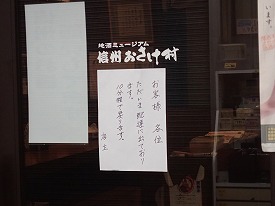 地酒ミュージアム
信州おさけ村
お客様 各位
ただいま配達に出ております。
10分程で戻ります。
店主
います。